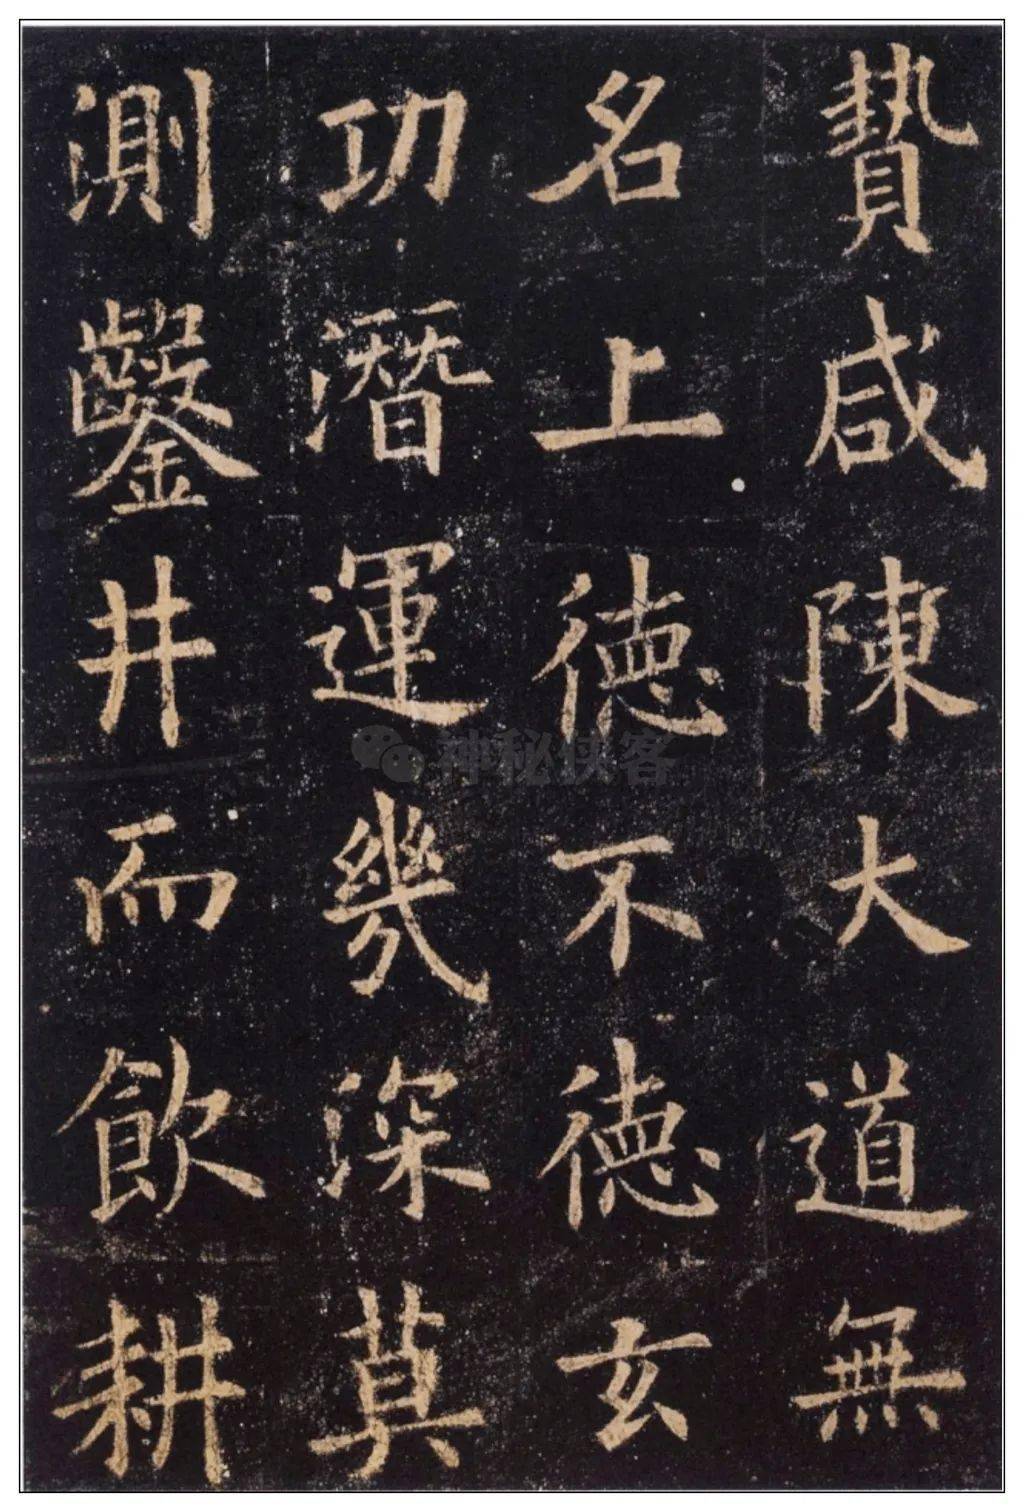 贄咸陳大道無
名上德不德玄
功潛運幾深莫
測鑿井而飲耕
神秘侠客